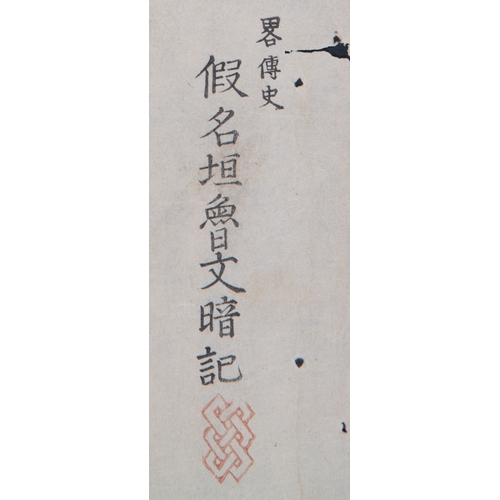 畧傳史
假名垣魯文暗記